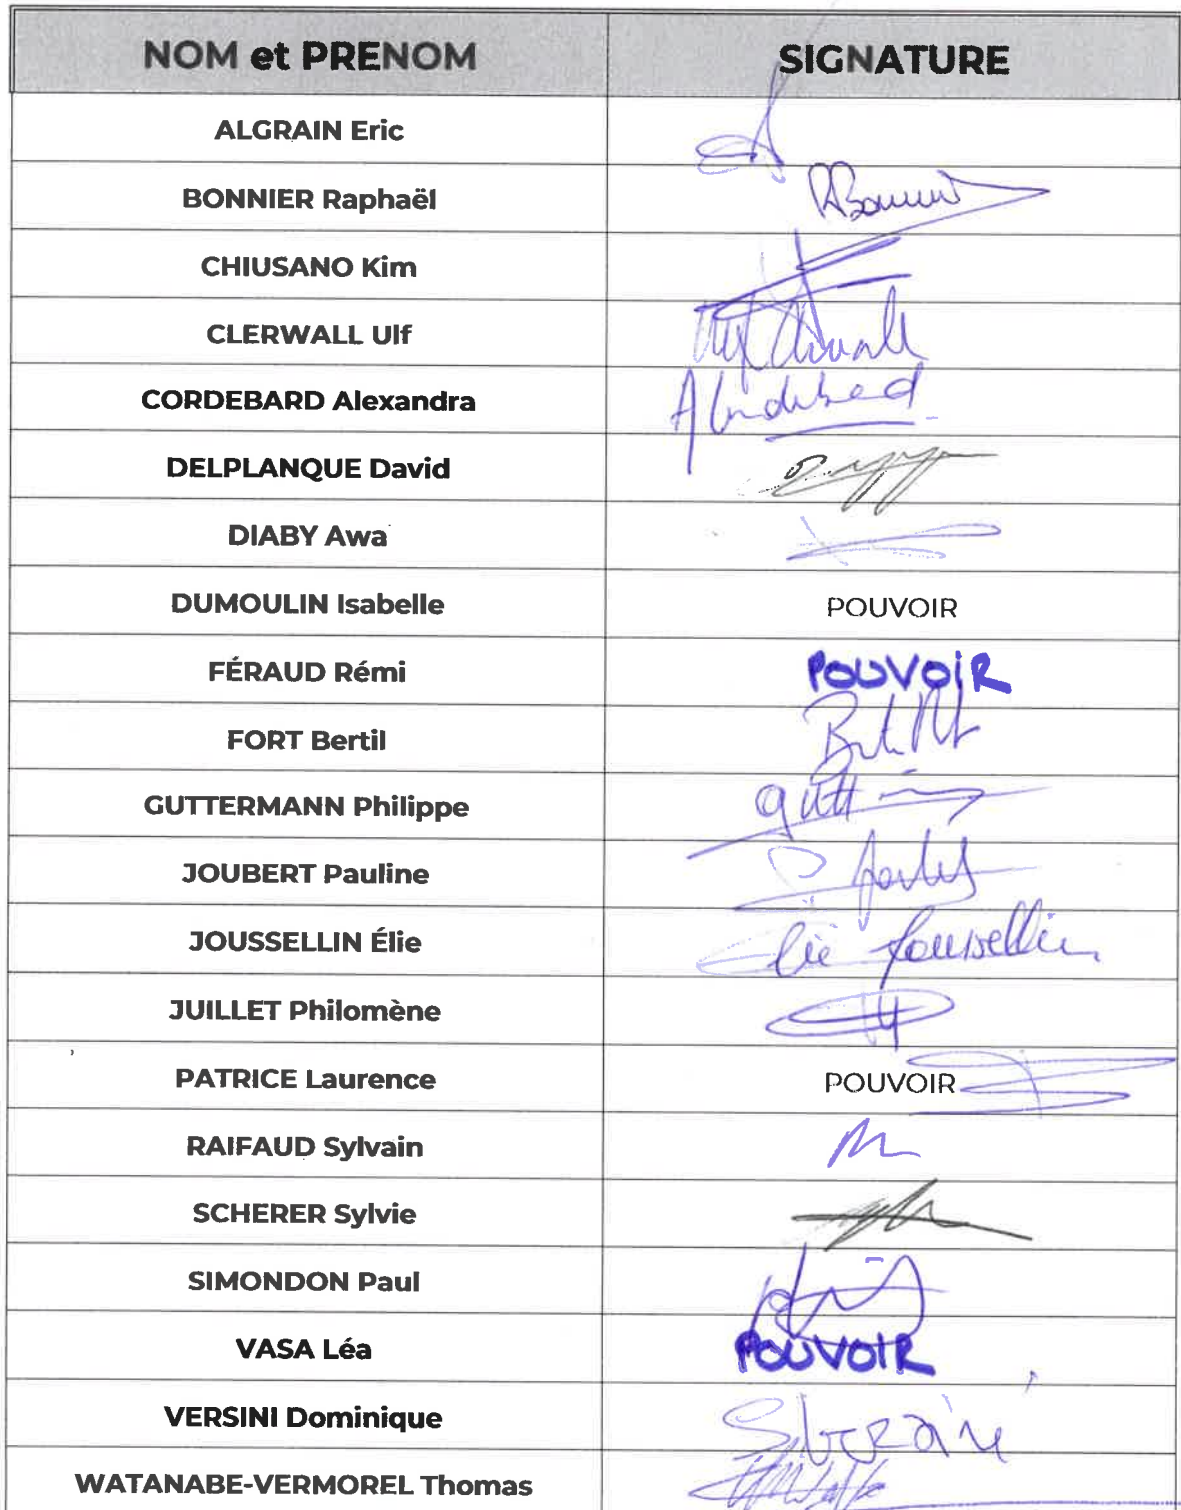 NOM et PRENOM SIGNATURE
ALGRAIN Eric
BONNIER Raphaël RBonnier
CHIUSANO Kim
CLERWALL Ulf
CORDEBARD Alexandra ACordebard
DELPLANQUE David
DIABY Awa
DUMOULIN Isabelle POUVOIR
FÉRAUD Rémi POUVOIR
FORT Bertil
GUTTERMANN Philippe
JOUBERT Pauline
JOUSSELLIN Élie Élie Joussellin
JUILLET Philomène
PATRICE Laurence POUVOIR
RAIFAUD Sylvain
SCHERER Sylvie
SIMONDON Paul
VASA Léa POUVOIR
VERSINI Dominique
WATANABE-VERMOREL Thomas